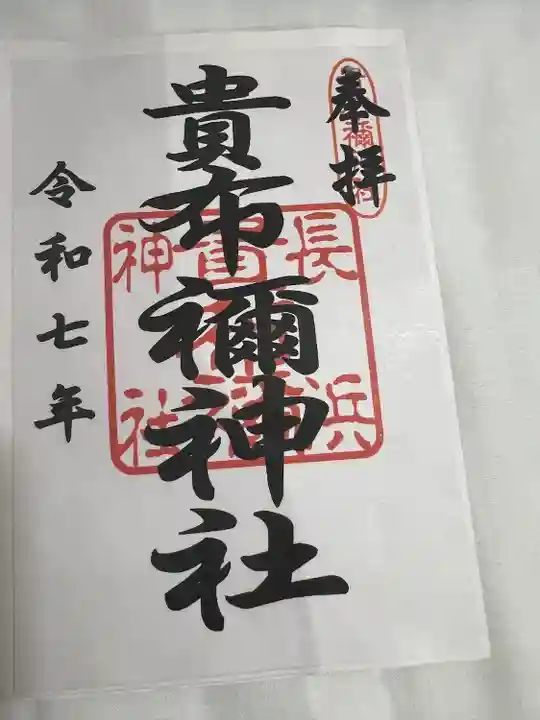 奉拝
貴布禰神社
長浜
貴布禰
神社
令和七年